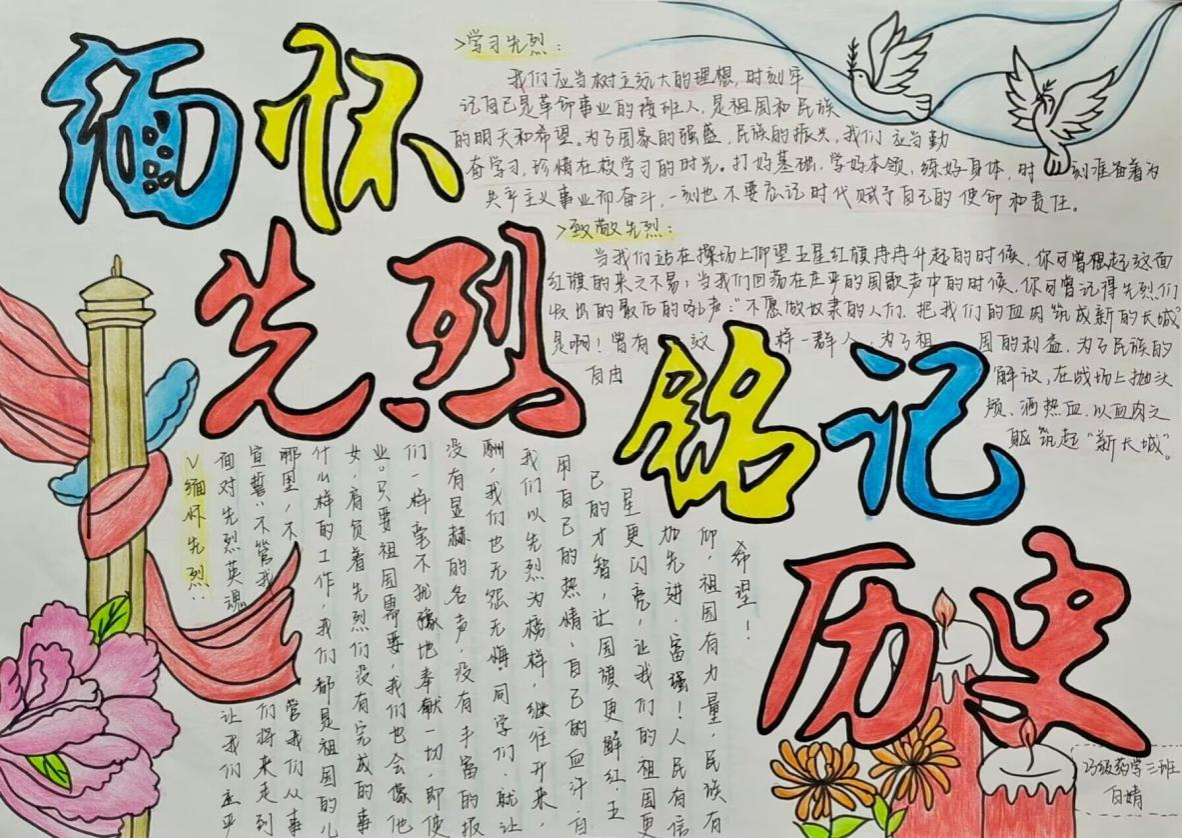 缅怀
先烈
铭记
历史
>学习先烈:
我们应当树立远大的理想,时刻牢
记自己是革命事业的接班人,是祖国和民族
的明天和希望。为了国家的强盛,民族的振兴,我们应当勤
奋学习,珍惜在校学习的时光。打好基础,学好本领,练好身体,时刻准备着为
共产主义事业而奋斗,一刻也不要忘记时代赋予自己的使命和责任。
>致敬先烈:
当我们站在操场上仰望五星红旗冉冉升起的时候,你可曾想起这面
红旗的来之不易;当我们回荡在庄严的国歌声中的时候,你可曾记得先烈们
发出的最后的吼声:“不愿做奴隶的人们,把我们的血肉筑成新的长城”
是啊!曾有这样一群人,为了祖国的利益,为了民族的
自由解放,在战场上抛头
颅、洒热血,以血肉之
躯筑起“新长城”。
>缅怀先烈:
面对先烈英魂让我们庄严
宣誓:不管我们将来走到
哪里,不管我们从事
什么样的工作,我们都是祖国的儿
女,肩负着先烈们没有完成的事
业。只要祖国需要,我们也会像他
们一样毫不犹豫地奉献一切,即使
没有显赫的名声,没有丰富的报
酬,我们也无怨无悔同学们,就让
我们以先烈为榜样,继往开来,
用自己的热情、自己的血汗、自
己的才智,让国旗更鲜红,五
星更闪亮,让我们的祖国更
加先进、富强!人民有信
仰,祖国有力量,民族有
希望!
23级药学三班
白婧